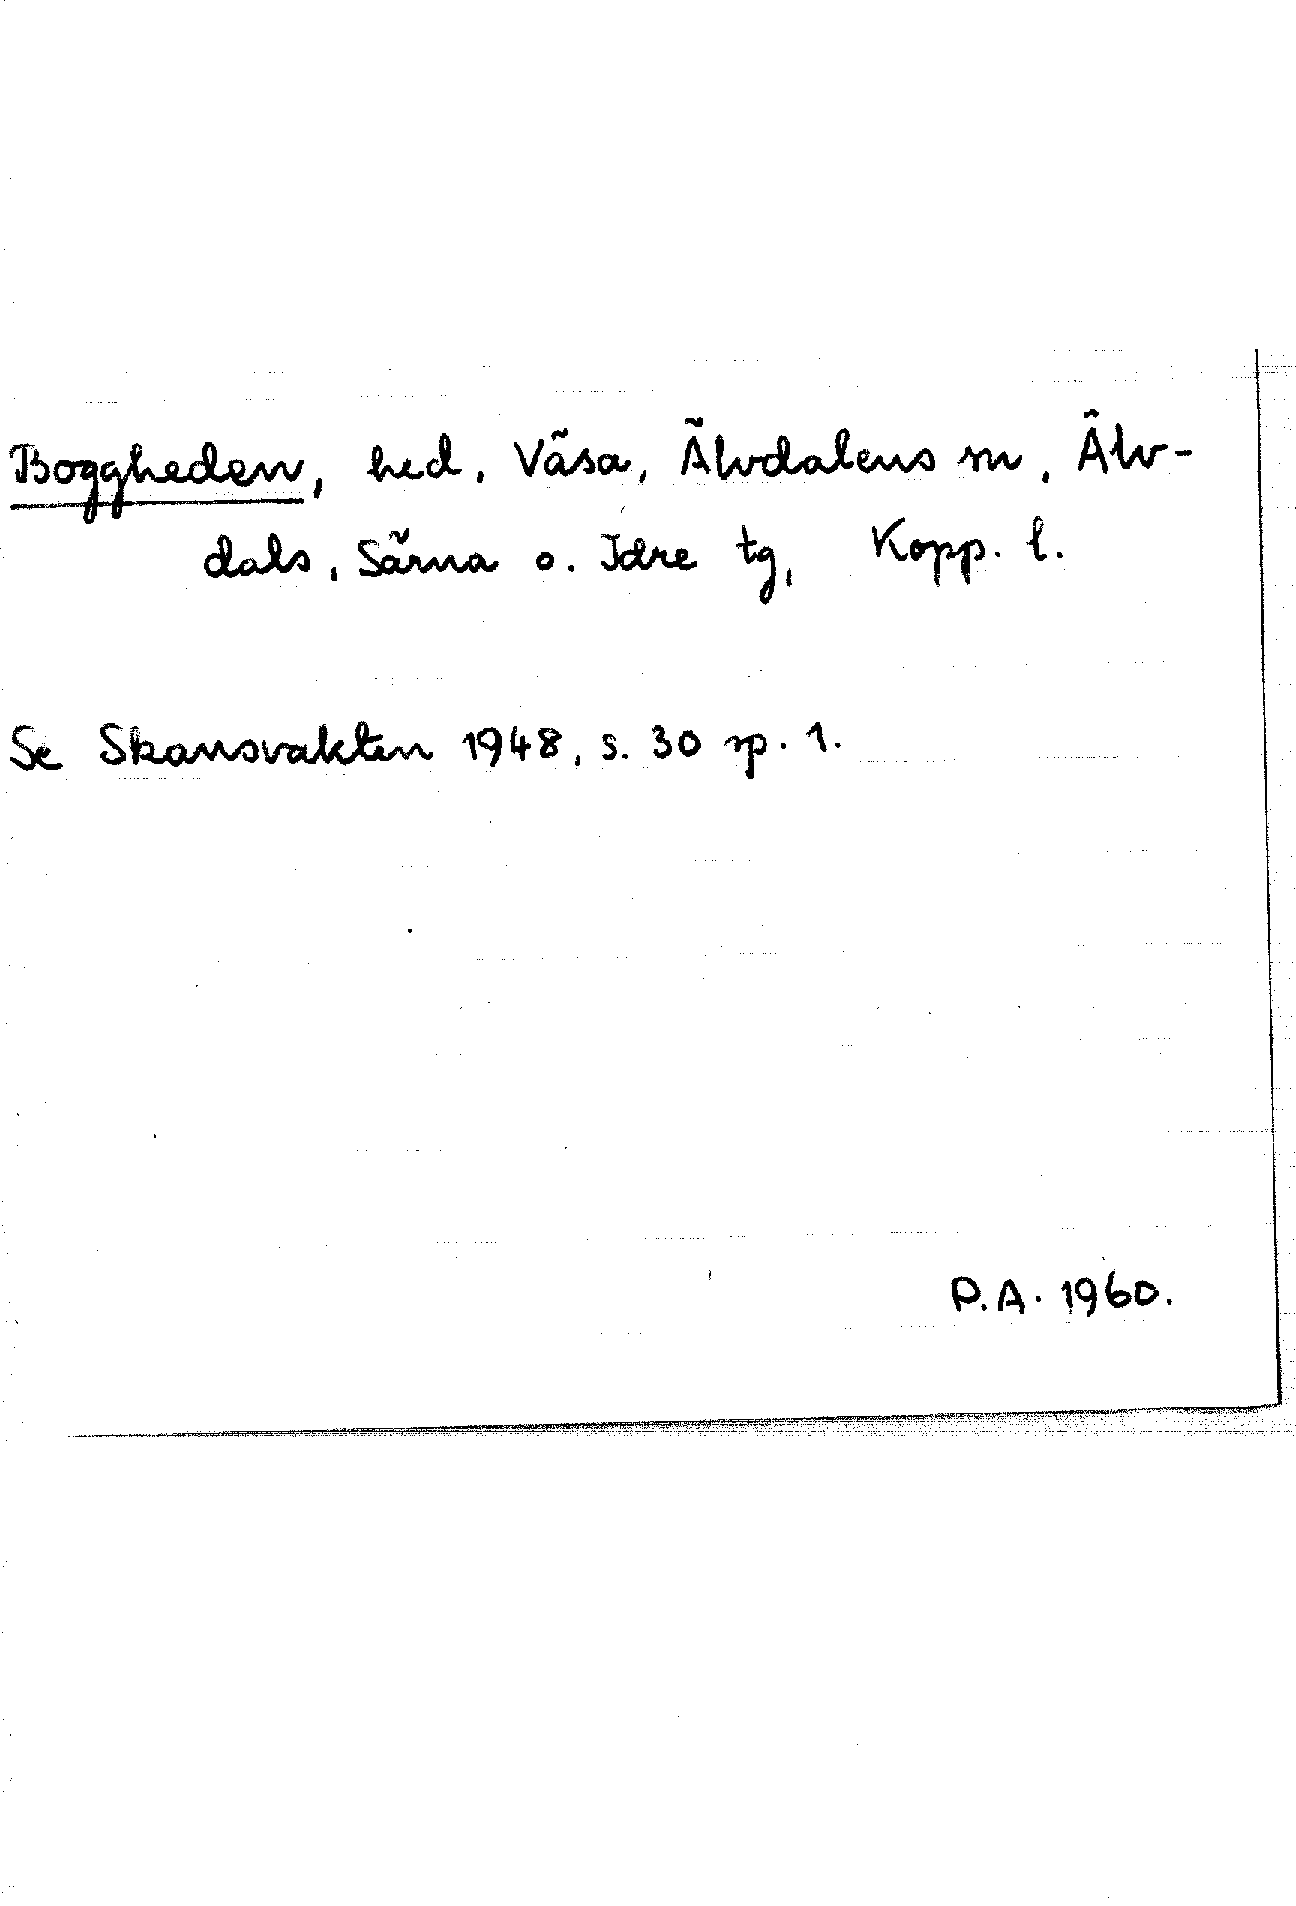 Boggheden, hed, Väsa, Älvdalens sn, Älv-
dals, Särna o. Idre tg, Kopp. l.
Se Skansvakten 1948, s. 30 sp. 1.
P.A. 1960.